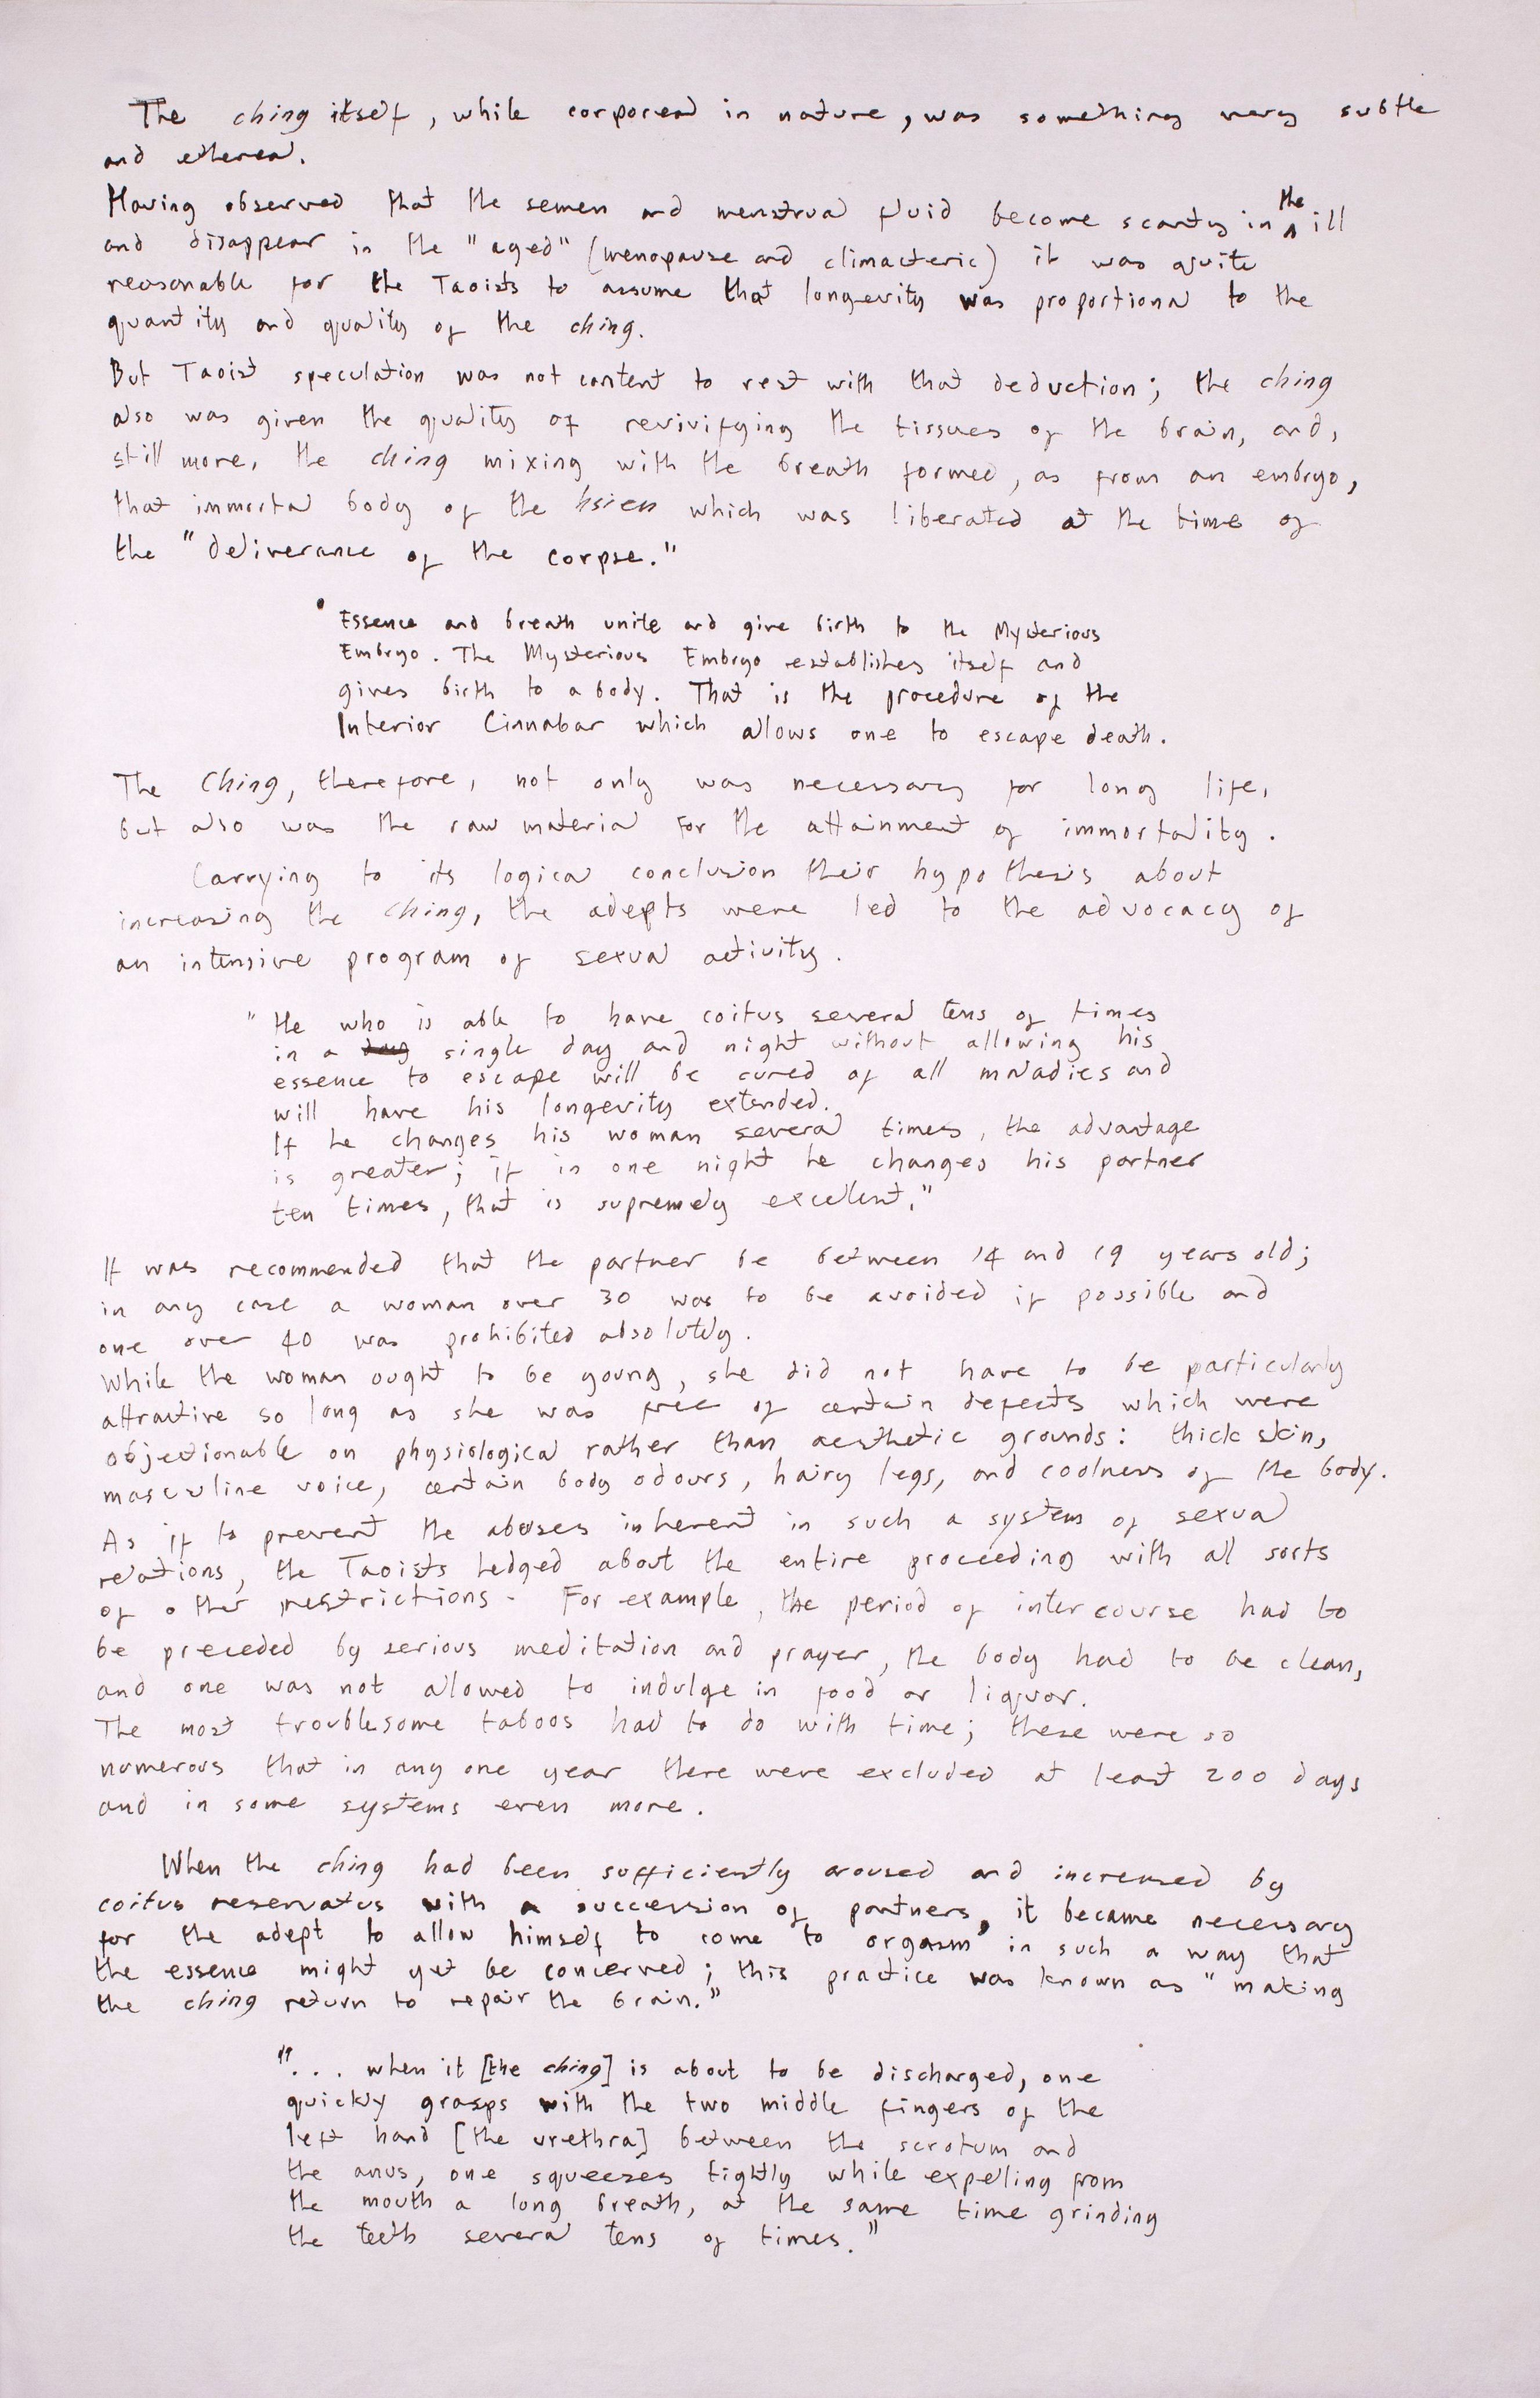 The ching itself, while corporeal in nature, was something very subtle
and ethereal.
Having observed that the semen and menstrual fluid become scanty in the ill
and disappear in the "aged" (menopause and climacteric) it was quite
reasonable for the Taoists to assume that longevity was proportional to the
quantity and quality of the ching.
But Taoist speculation was not content to rest with that deduction; the ching
also was given the quality of revivifying the tissues of the brain, and,
still more, the ching mixing with the breath formed, as from an embryo,
that immortal body of the hsien which was liberated at the time of
the "deliverance of the corpse."
Essence and breath unite and give birth to the Mysterious
Embryo. The Mysterious Embryo establishes itself and
gives birth to a body. That is the procedure of the
Interior Cinnabar which allows one to escape death.
The Ching, therefore, not only was necessary for long life,
but also was the raw material for the attainment of immortality.
Carrying to its logical conclusion their hypothesis about
increasing the ching, the adepts were led to the advocacy of
an intensive program of sexual activity.
"He who is able to have coitus several tens of times
in a single day and night without allowing his
essence to escape will be cured of all maladies and
will have his longevity extended.
If he changes his woman several times, the advantage
is greater; if in one night he changes his partner
ten times, that is supremely excellent."
It was recommended that the partner be between 14 and 19 years old;
in any case a woman over 30 was to be avoided if possible and
one over 40 was prohibited absolutely.
While the woman ought to be young, she did not have to be particularly
attractive so long as she was free of certain defects which were
objectionable on physiological rather than aesthetic grounds: thick skin,
masculine voice, certain body odours, hairy legs, and coolness of the body.
As if to prevent the abuses inherent in such a system of sexual
relations, the Taoists hedged about the entire proceeding with all sorts
of other restrictions. For example, the period of intercourse had to
be preceded by serious meditation and prayer, the body had to be clean,
and one was not allowed to indulge in food or liquor.
The most troublesome taboos had to do with time; these were so
numerous that in any one year there were excluded at least 200 days
and in some systems even more.
When the ching had been sufficiently aroused and increased by
coitus reservatus with a succession of partners, it became necessary
for the adept to allow himself to come to orgasm in such a way that
the essence might yet be concerved; this practice was known as "making
the ching return to repair the brain."
"... when it [the ching] is about to be discharged, one
quickly grasps with the two middle fingers of the
left hand [the urethra] between the scrotum and
the anus, one squeezes tightly while expelling from
the mouth a long breath, at the same time grinding
the teeth several tens of times."